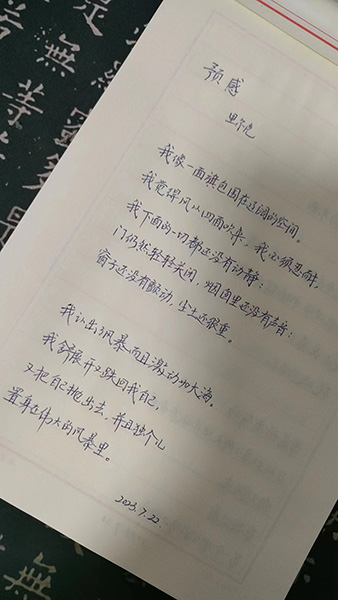 是
無
等
無
预感
里尔克
我像一面旗包围在辽阔的空间。
我觉得风从四面吹来，我必须忍耐，
我下面的一切都还没有动静：
门仍然轻轻关闭，烟囱里还没有声音；
窗子还没有颤动，尘土还很重。
我认出了风暴而且激动如大海。
我舒展开又跌回我自己，
又把自己抛出去，并且独个儿
置身在伟大的风暴里。
2023.7.22.
無